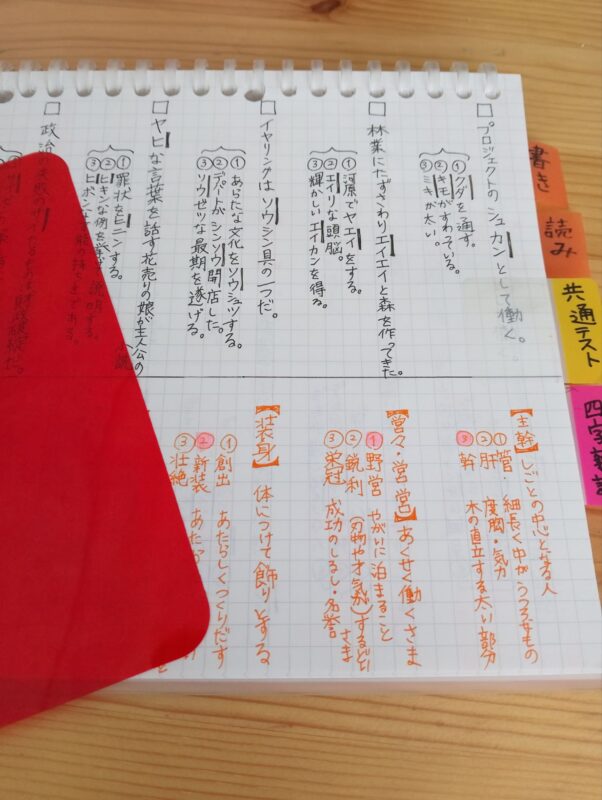 □ プロジェクトの シュカンとして働く。
①クダを通す。
②キモがすわっている。
③ミキが太い。
□ 林業にたずさわり エイエイと森を作ってきた。
①河原でヤエイをする。
②エイリな頭脳。
③輝かしい エイカンを得る。
□ イヤリングは ソウシン具の一つだ。
①あらたな文化をソウシュツする。
②デパートが シンソウ開店した。
③ソウゼツな最期を遂げる。
□ ヤヒな言葉を話す花売りの娘が主人公の
①罪状をヒニンする。
②ヒキンな例を
③ヒボンな
□ 政治
【主幹】しごとの中心となる人
①管 細長く中がうつろなもの
②肝 度胸・気力
③幹 木の直立する太い部分
【営々・営営】あくせく働くさま
①野営 やがいに泊まること
②鋭利 (刃物や才気が)するどいさま
③栄冠 成功のしるし・名誉
【装身】体につけて飾りとする
①創出 あたらしくつくりだす
②新装 あたら
③壮絶
書き
読み
共通テスト
四字熟語